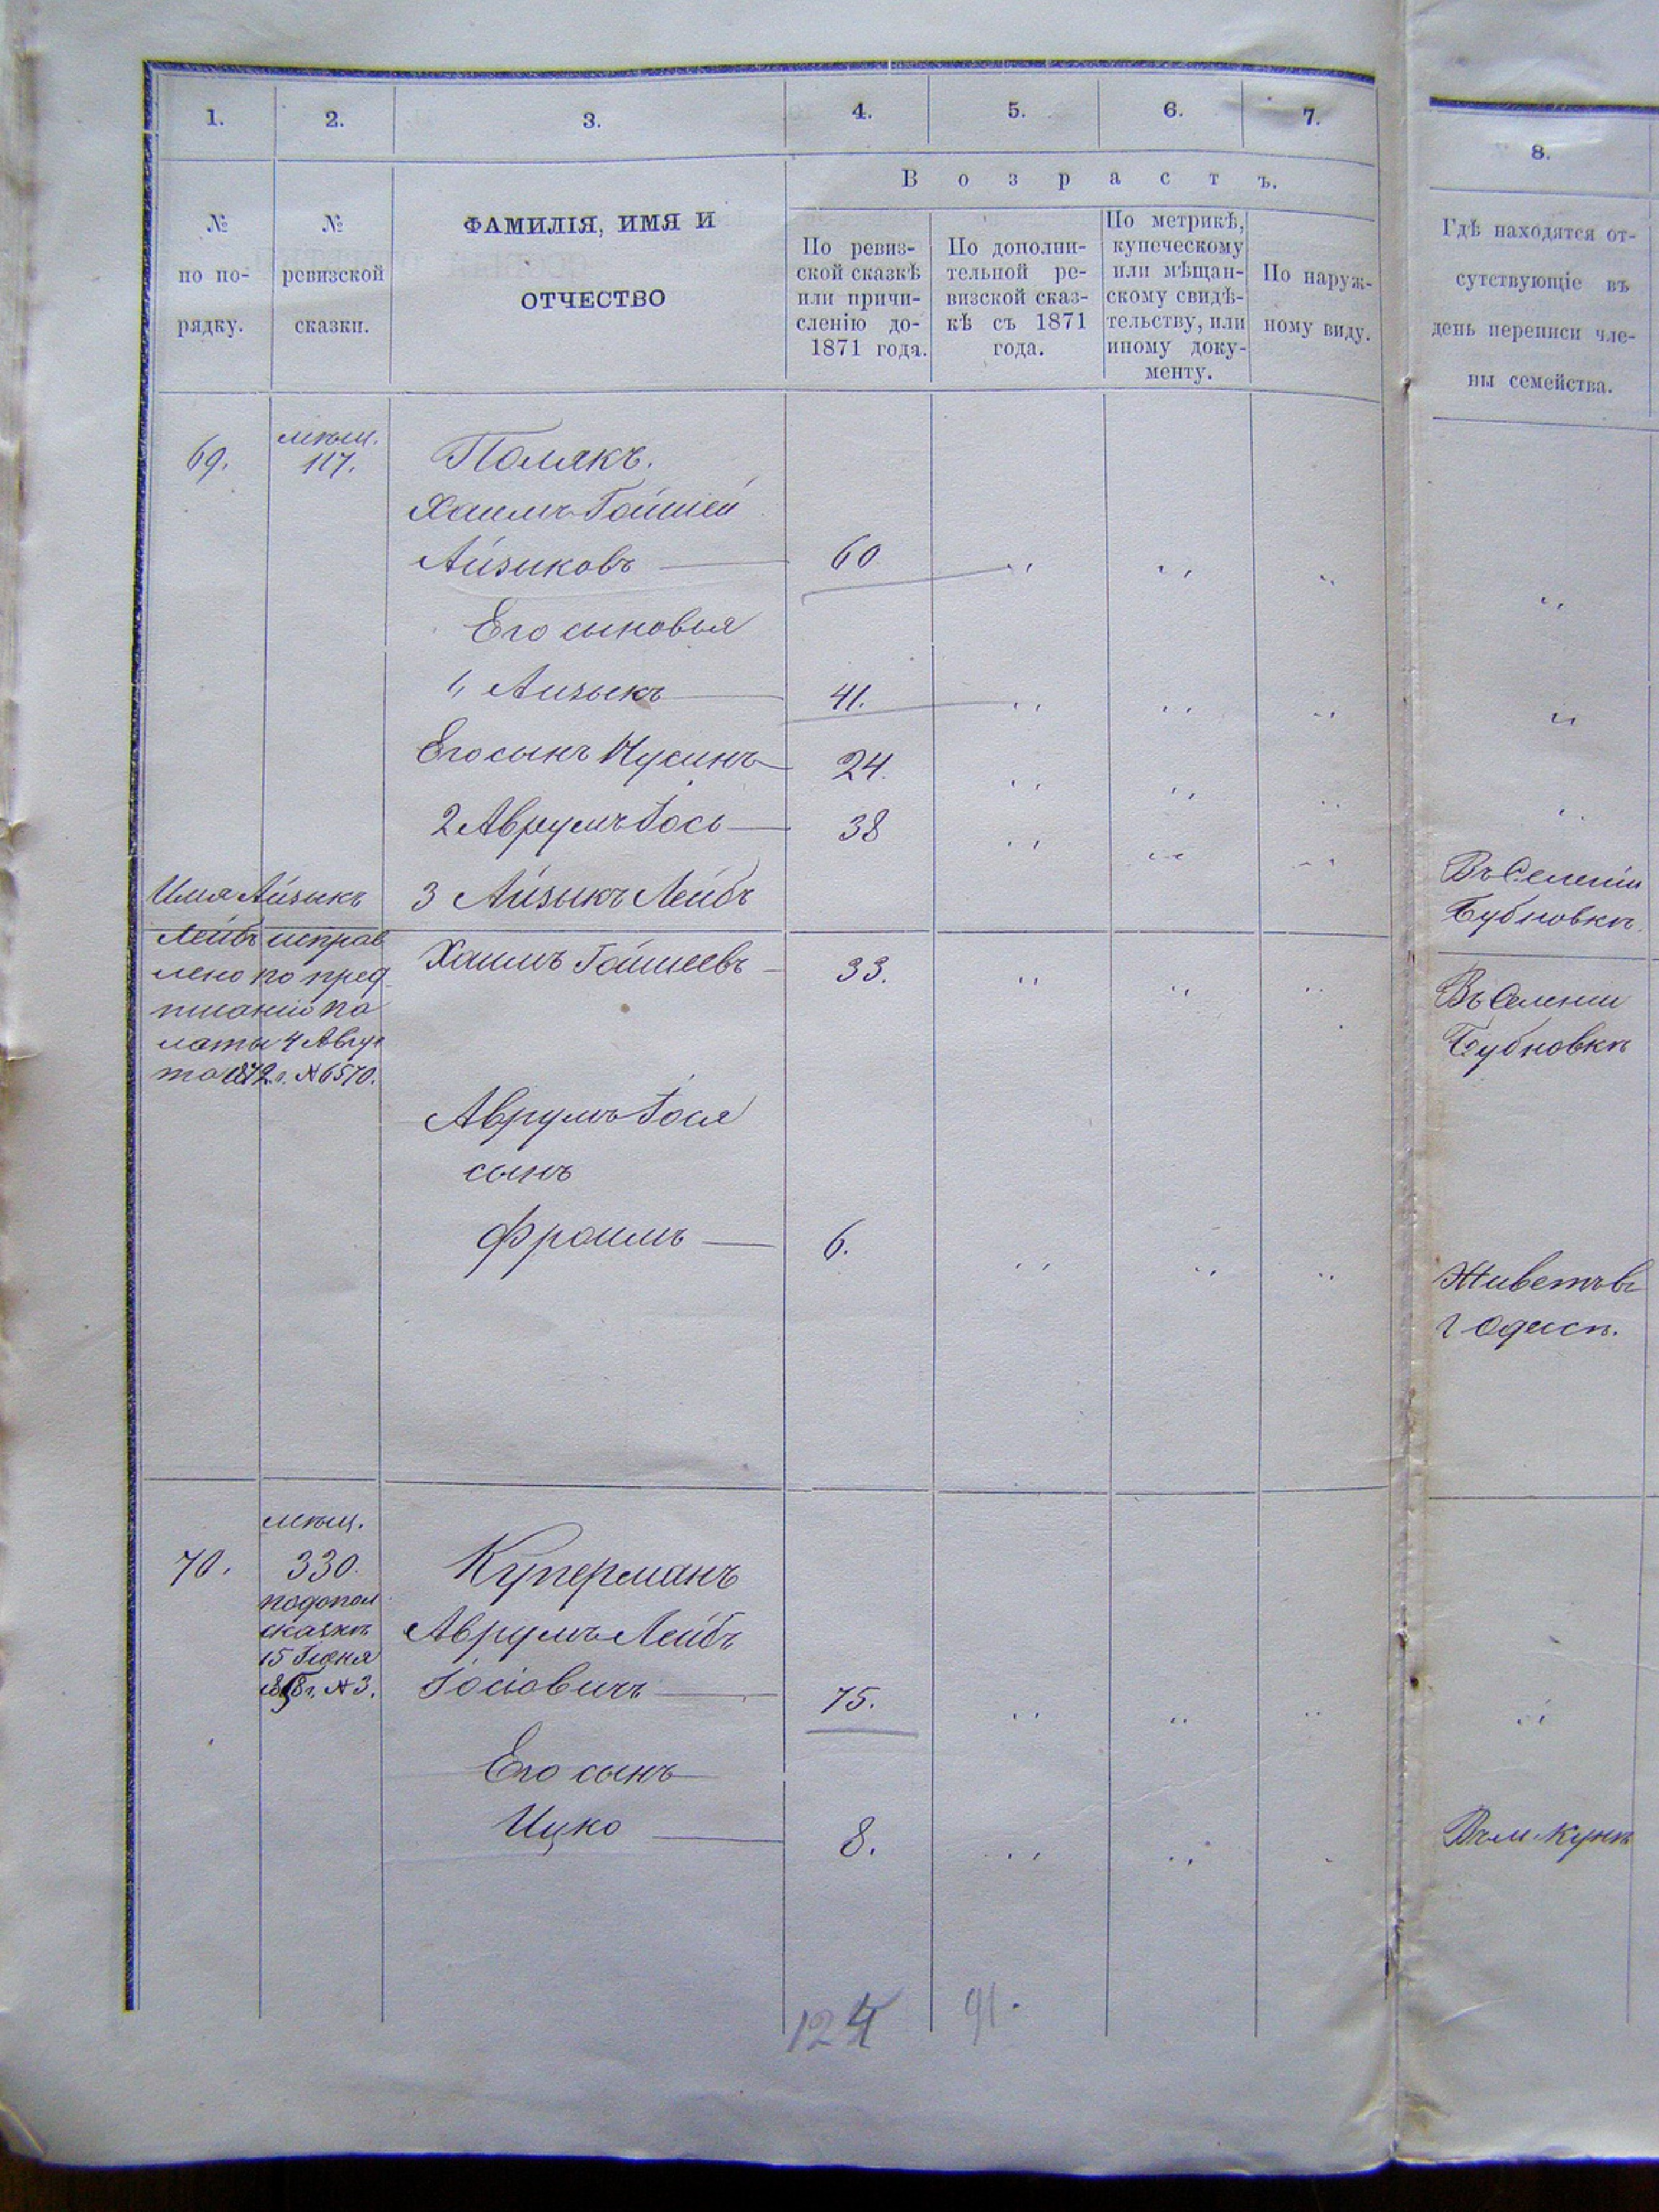 1.
2.
3.
4.
5.
6.
7.
8.
№
по по-
рядку.
№
ревизской
сказки.
ФАМИЛІЯ, ИМЯ И
ОТЧЕСТВО
Возрастъ.
По ревиз-
ской сказкѣ
или причи-
сленію до-
1871 года.
По дополни-
тельной ре-
визской сказ-
кѣ съ 1871
года.
По метрикѣ,
купеческому
или мѣщан-
скому свидѣ-
тельству, или
иному доку-
менту.
По наруж-
ному виду.
Гдѣ находятся от-
сутствующіе въ
день переписи чле-
ны семейства.
69.
мѣщ.
117.
Полякъ.
Хаимъ Гойшій
Айзиковъ 60
Его сыновья
1, Аизыкъ 41.
Его сынъ Нусинъ 24.
2 Аврумъ Іось 38
Въ Селеніи
Бубновкѣ
3 Айзыкъ Лейбъ
Хаимъ Гойшеевъ 33.
Въ Селеніи
Бубновкѣ
Имя Айзыкъ
Лейбъ исправ
лено по пред
писанію Па
латы 4 Авгус
та 1872 г. № 6570.
Аврумъ Іося
сынъ
Фроимъ 6.
Живетъ въ
г Одесѣ.
70.
мѣщ.
330.
по допол
сказкѣ
15 Іюня
1858 г. № 3.
Куперманъ
Аврумъ Лейбъ
Іосіовичъ 75.
Его сынъ
Ицко 8.
Въ м Кунѣ
124
91.